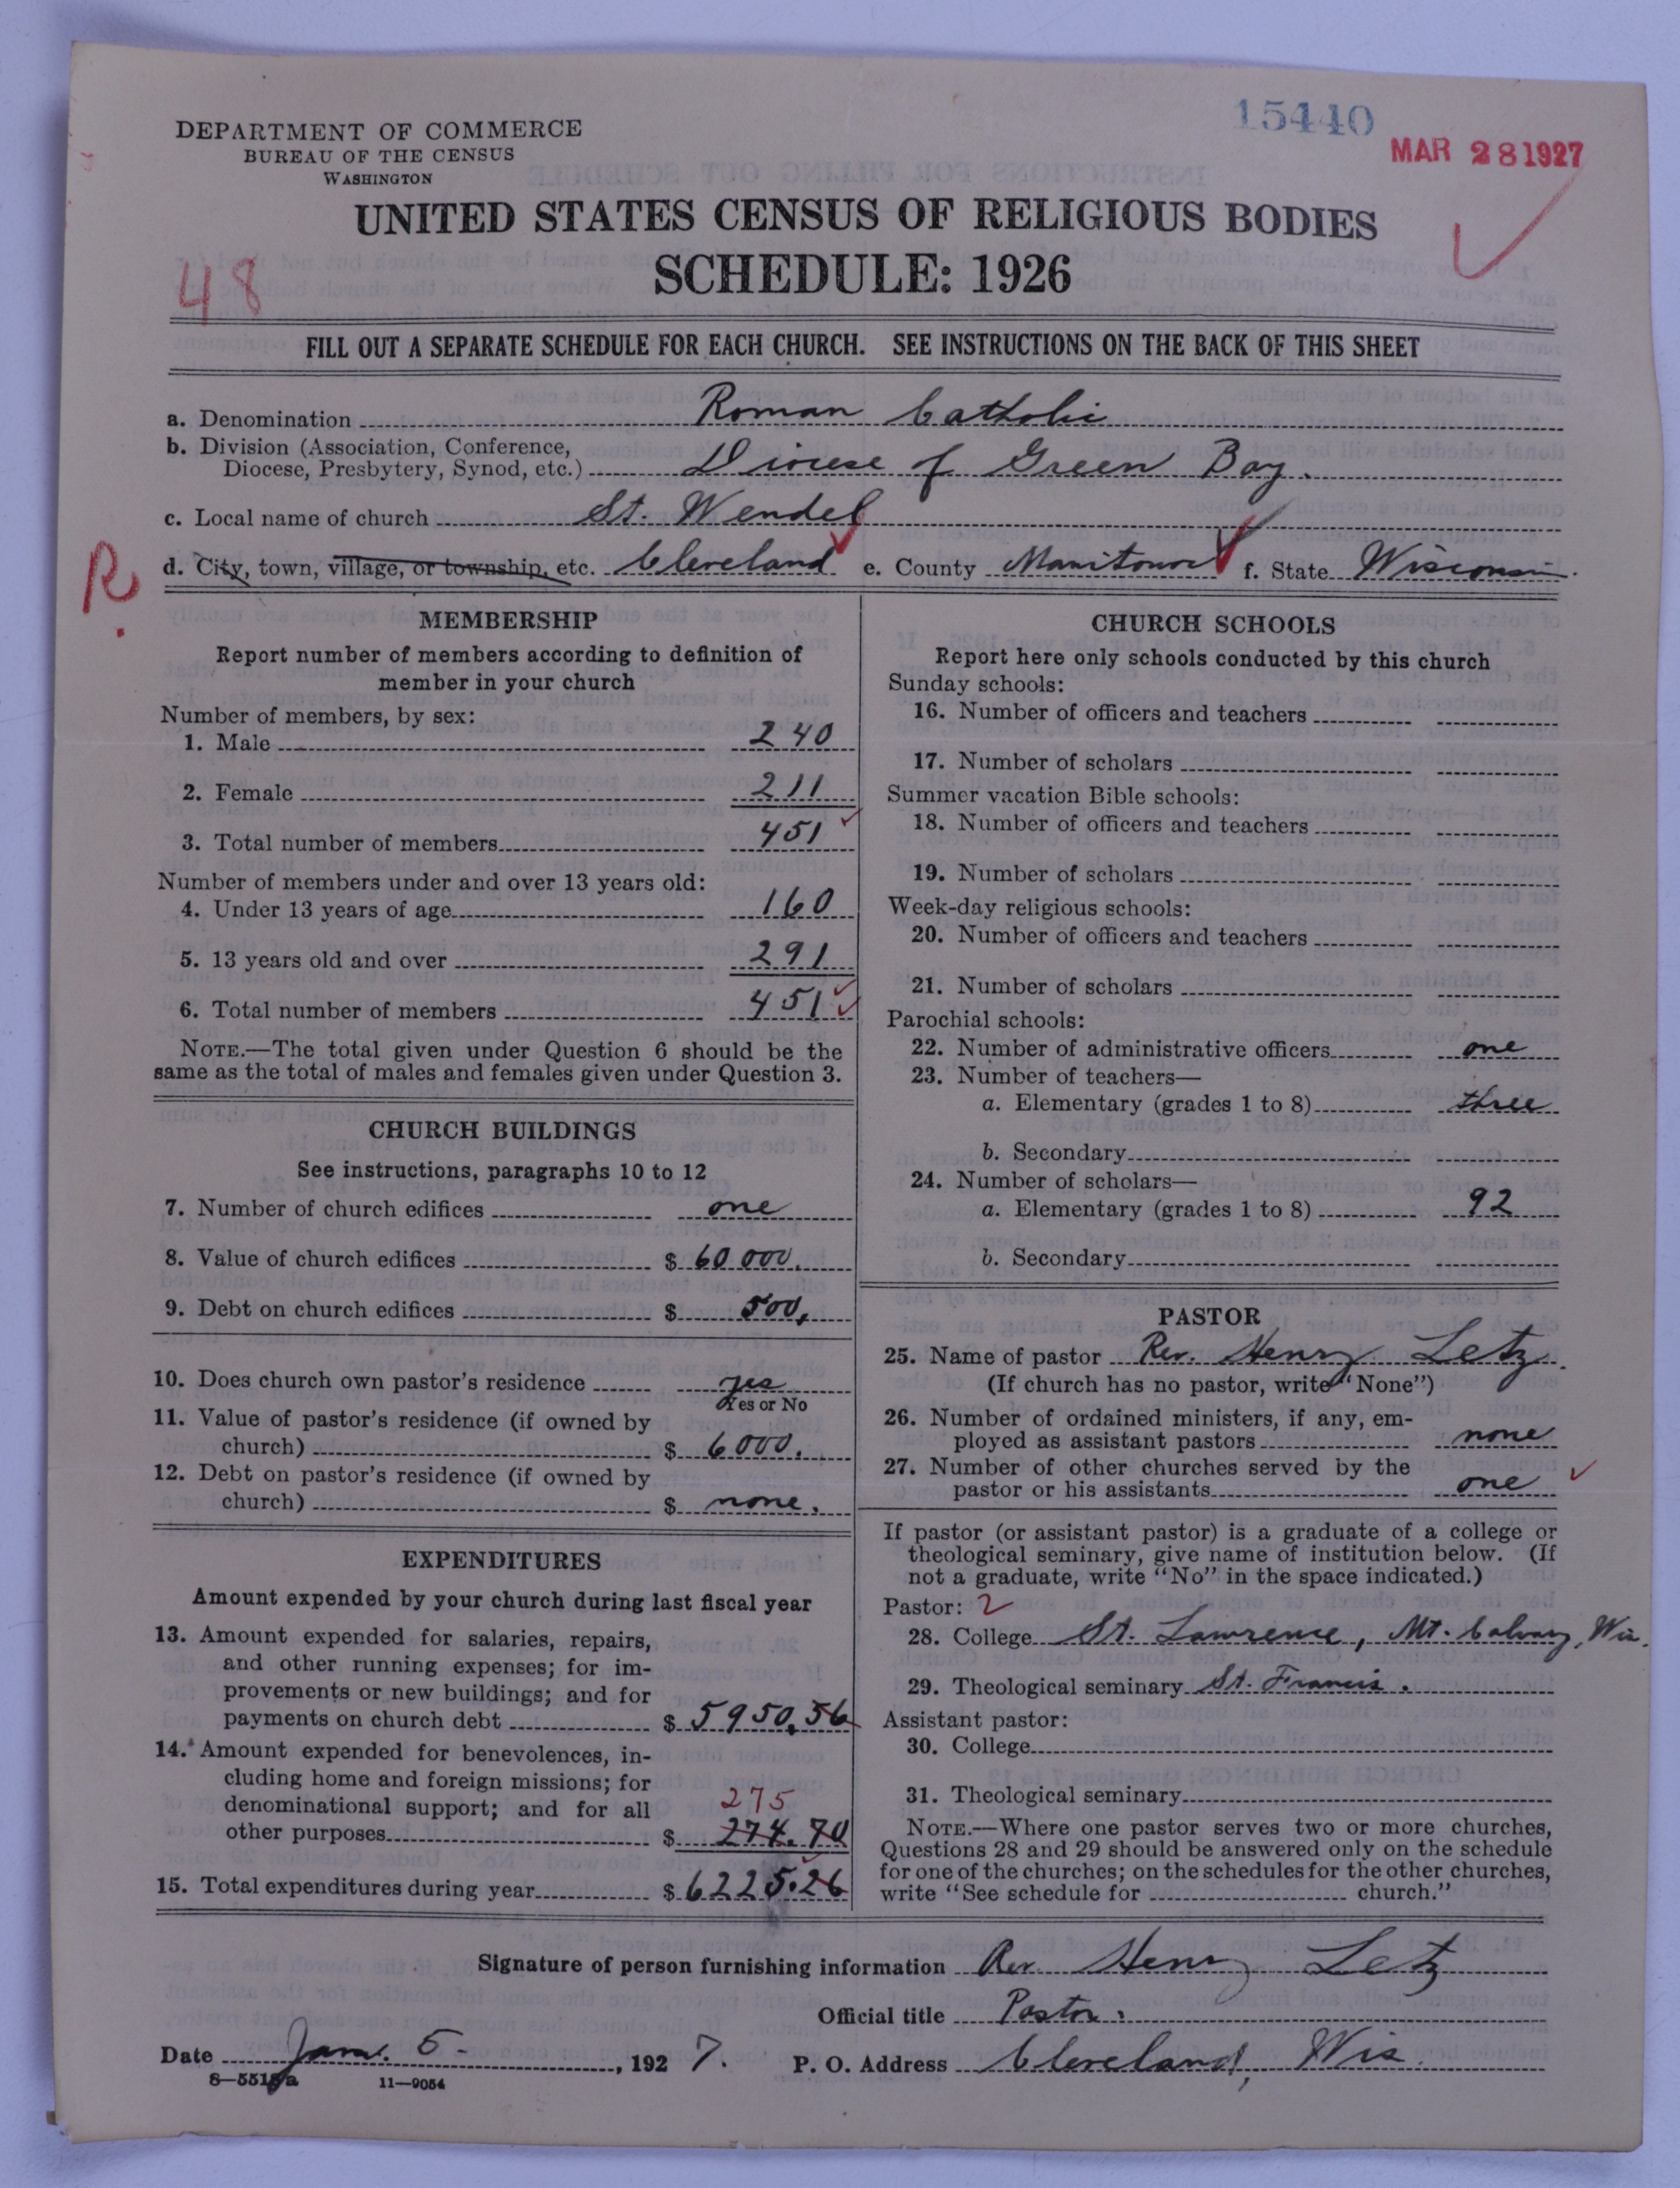 15440
MAR 28 1927
DEPARTMENT OF COMMERCE
BUREAU OF THE CENSUS
WASHINGTON
UNITED STATES CENSUS OF RELIGIOUS BODIES
SCHEDULE: 1926
48
FILL OUT A SEPARATE SCHEDULE FOR EACH CHURCH. SEE INSTRUCTIONS ON THE BACK OF THIS SHEET
a. Denomination Roman Catholic
b. Division (Association, Conference,
Diocese, Presbytery, Synod, etc.) Diocese of Green Bay.
c. Local name of church St. Wendel
R.
d. City, town, village, or township, etc. Cleveland e. County Manitowoc f. State Wisconsin.
MEMBERSHIP
Report number of members according to definition of
member in your church
Number of members, by sex:
1. Male 240
2. Female 211
3. Total number of members 451
Number of members under and over 13 years old:
4. Under 13 years of age 160
5. 13 years old and over 291
6. Total number of members 451
NOTE.—The total given under Question 6 should be the
same as the total of males and females given under Question 3.
CHURCH BUILDINGS
See instructions, paragraphs 10 to 12
7. Number of church edifices one
8. Value of church edifices $ 60 000.
9. Debt on church edifices $ 500.
10. Does church own pastor's residence yes
Yes or No
11. Value of pastor's residence (if owned by
church) $ 6000.
12. Debt on pastor's residence (if owned by
church) $ none.
EXPENDITURES
Amount expended by your church during last fiscal year
13. Amount expended for salaries, repairs,
and other running expenses; for im-
provements or new buildings; and for
payments on church debt $ 5950.56
14. Amount expended for benevolences, in-
cluding home and foreign missions; for
denominational support; and for all 275
other purposes $ 274.70
15. Total expenditures during year $ 6225.26
CHURCH SCHOOLS
Report here only schools conducted by this church
Sunday schools:
16. Number of officers and teachers
17. Number of scholars
Summer vacation Bible schools:
18. Number of officers and teachers
19. Number of scholars
Week-day religious schools:
20. Number of officers and teachers
21. Number of scholars
Parochial schools:
22. Number of administrative officers one
23. Number of teachers—
a. Elementary (grades 1 to 8) three
b. Secondary
24. Number of scholars—
a. Elementary (grades 1 to 8) 92
b. Secondary
PASTOR
25. Name of pastor Rev. Henry Letz.
(If church has no pastor, write "None")
26. Number of ordained ministers, if any, em-
ployed as assistant pastors none
27. Number of other churches served by the
pastor or his assistants one
If pastor (or assistant pastor) is a graduate of a college or
theological seminary, give name of institution below. (If
not a graduate, write "No" in the space indicated.)
Pastor: 2
28. College St. Lawrence, Mt. Calvary, Wis.
29. Theological seminary St. Francis.
Assistant pastor:
30. College
31. Theological seminary
NOTE.—Where one pastor serves two or more churches,
Questions 28 and 29 should be answered only on the schedule
for one of the churches; on the schedules for the other churches,
write "See schedule for church."
Signature of person furnishing information Rev. Henry Letz
Official title Pastor.
Date Jan. 5 -, 1927. P. O. Address Cleveland, Wis.
8—5515a 11—9054